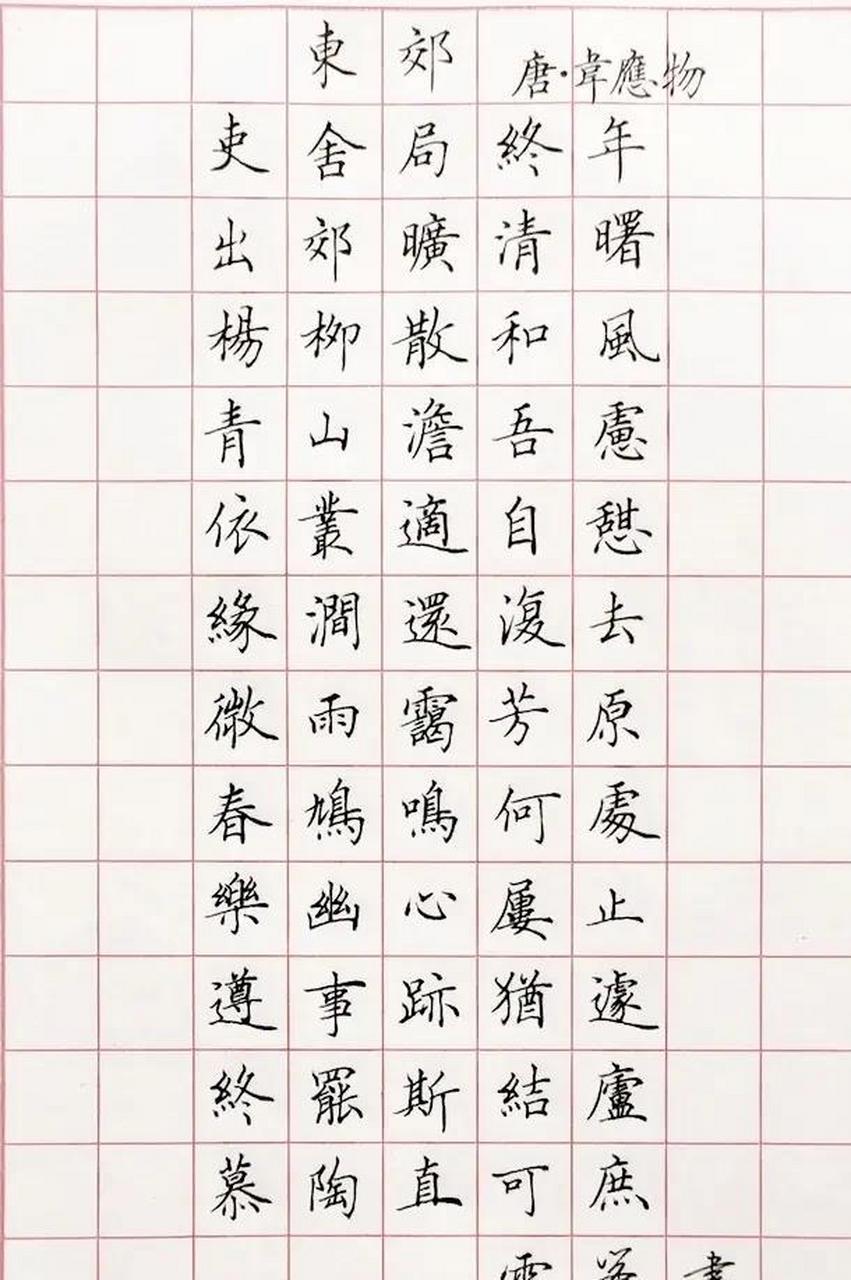 東郊 唐·韋應物
吏舍局終年
出郊曠清曙
楊柳散和風
青山澹吾慮
依叢適自憩
緣澗還復去
微雨靄芳原
春鳩鳴何處
樂幽心屢止
遵事跡猶遽
終罷斯結廬
慕陶直可庶